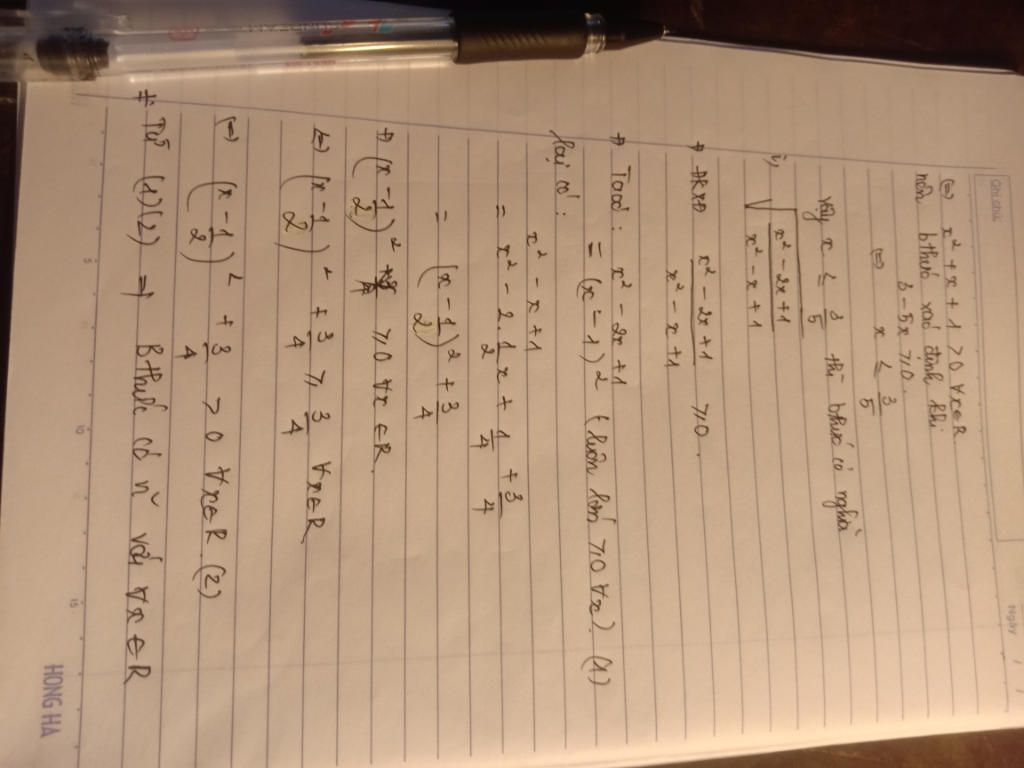 Ghi chú
Ngày / /
(=) x² + x + 1 > 0 ∀x∈R
nên bthức xác định khi
3 - 5x ≥ 0.
(=) x ≤ 3/5
Vậy x ≤ 3/5 thì bthức có nghĩa
i) √((x² - 2x + 1)/(x² - x + 1))
(x² - 2x + 1)/(x² - x + 1) ≥ 0.
Ta có: x² - 2x + 1
= (x - 1)² (luôn lớn ≥ 0 ∀x). (1)
lại có:
x² - x + 1
= x² - 2.1/2x + 1/4 + 3/4
= (x - 1/2)² + 3/4
(x - 1/2)² ≥ 0 ∀x∈R.
(=) (x - 1/2)² + 3/4 ≥ 3/4 ∀x∈R
(=) (x - 1/2)² + 3/4 > 0 ∀x∈R. (2)
Từ (1)(2) => Bthức có n~ với ∀x∈R
5
10
15
HONG HA